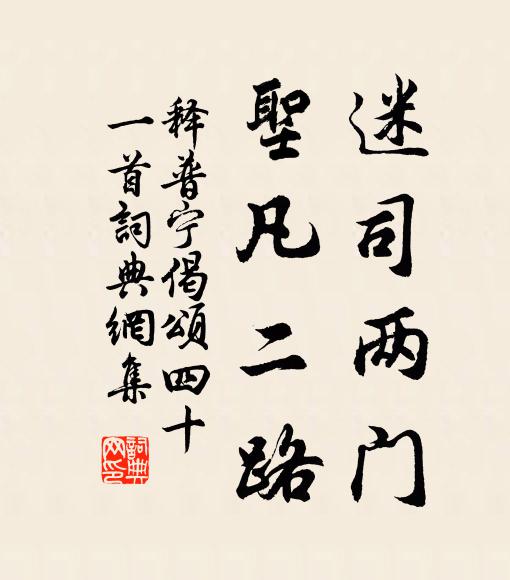 迷司两门
聖凡二路
释普宁偈頌四十
一首詞典網集
詞典网印